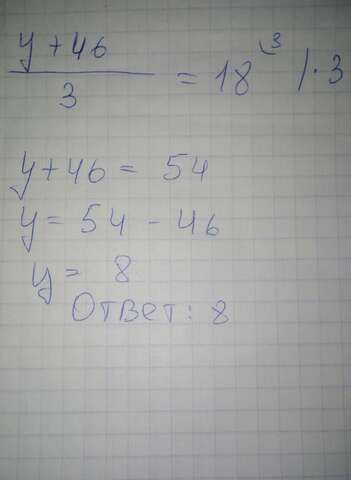 y + 46
3
= 18 ⌣3 / · 3
y + 46 = 54
y = 54 - 46
y = 8
Ответ: 8